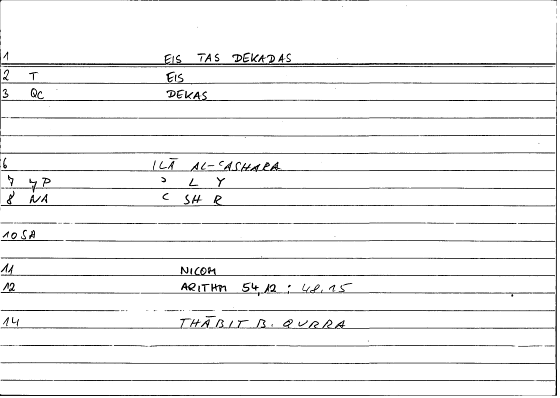 1 EIS TAS DEKADAS
2 T EIS
3 QC DEKAS
6 ILĀ AL-ʿASHARA
7 YP ʾ L Y
8 NA ʿ SH R
10 SA
11 NICOM
12 ARITHM 54,12 : 48,15
14 THĀBIT B. QURRA